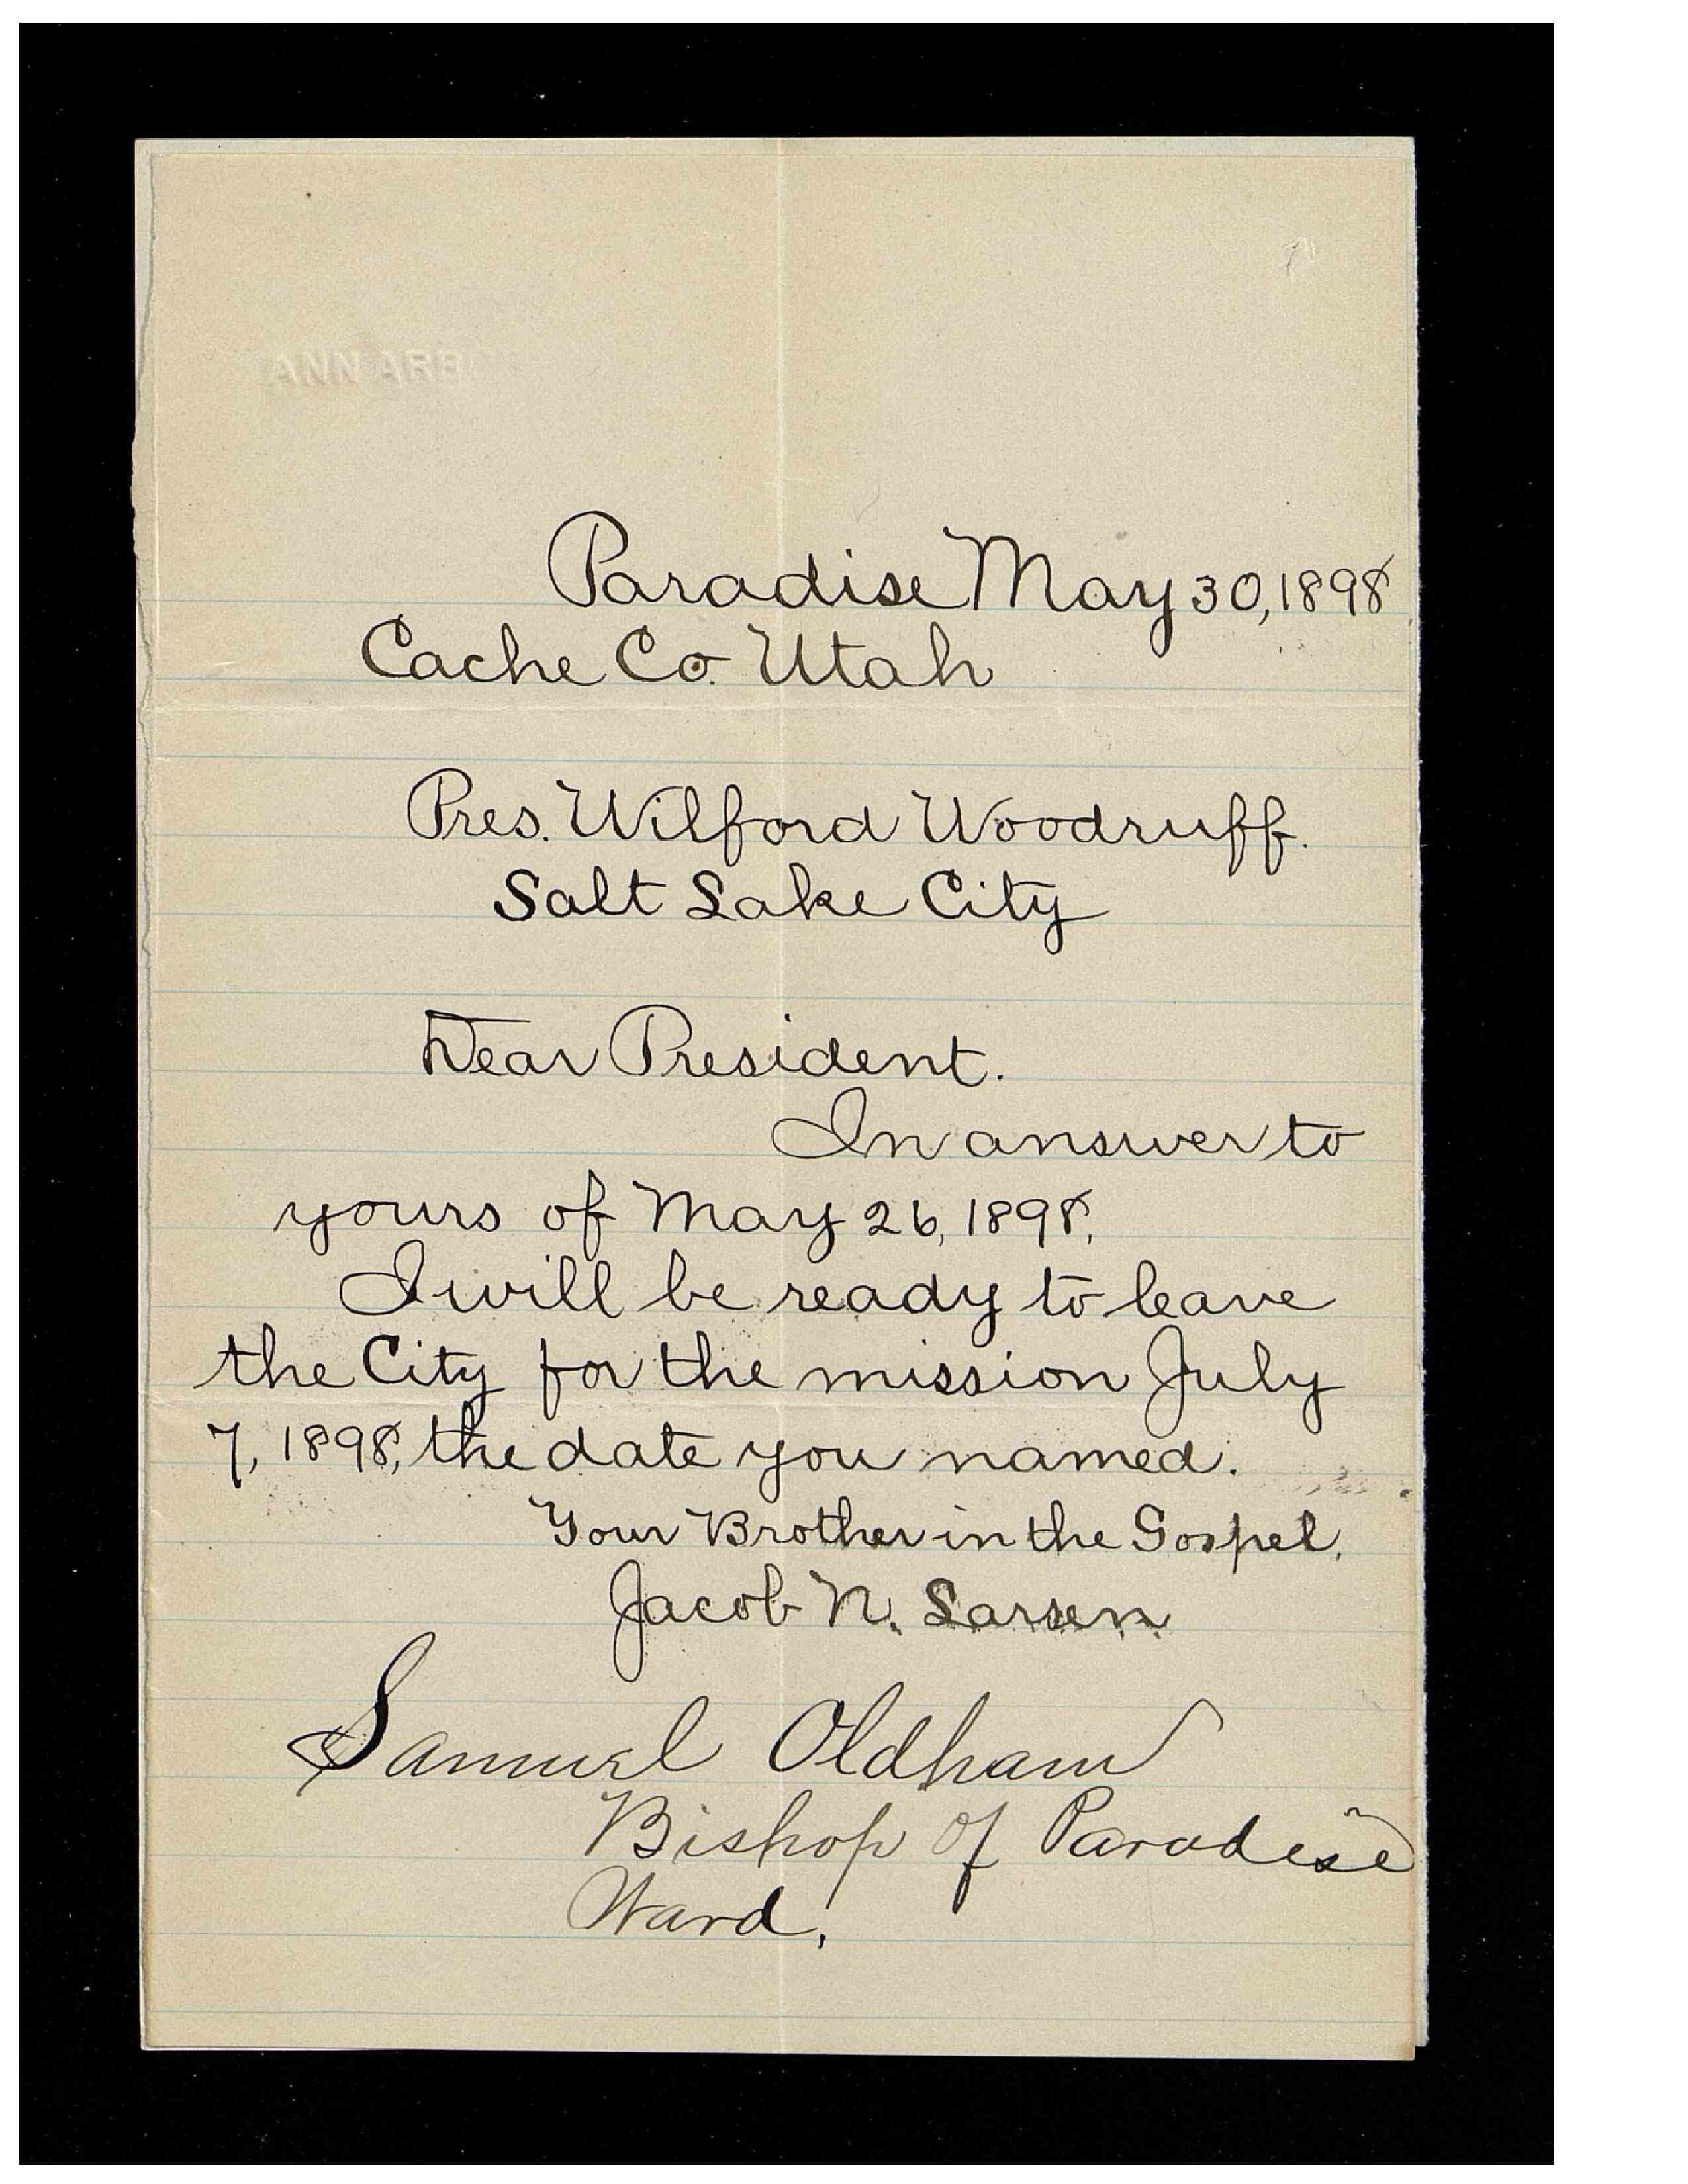 ANN ARB
Paradise May 30, 1898
Cache Co. Utah
Pres. Wilford Woodruff.
Salt Lake City
Dear President.
In answer to
yours of May 26, 1898,
I will be ready to leave
the City for the mission July
7, 1898, the date you named.
Your Brother in the Gospel,
Jacob N. Larsen
Samuel Oldham
Bishop of Paradise
Ward,